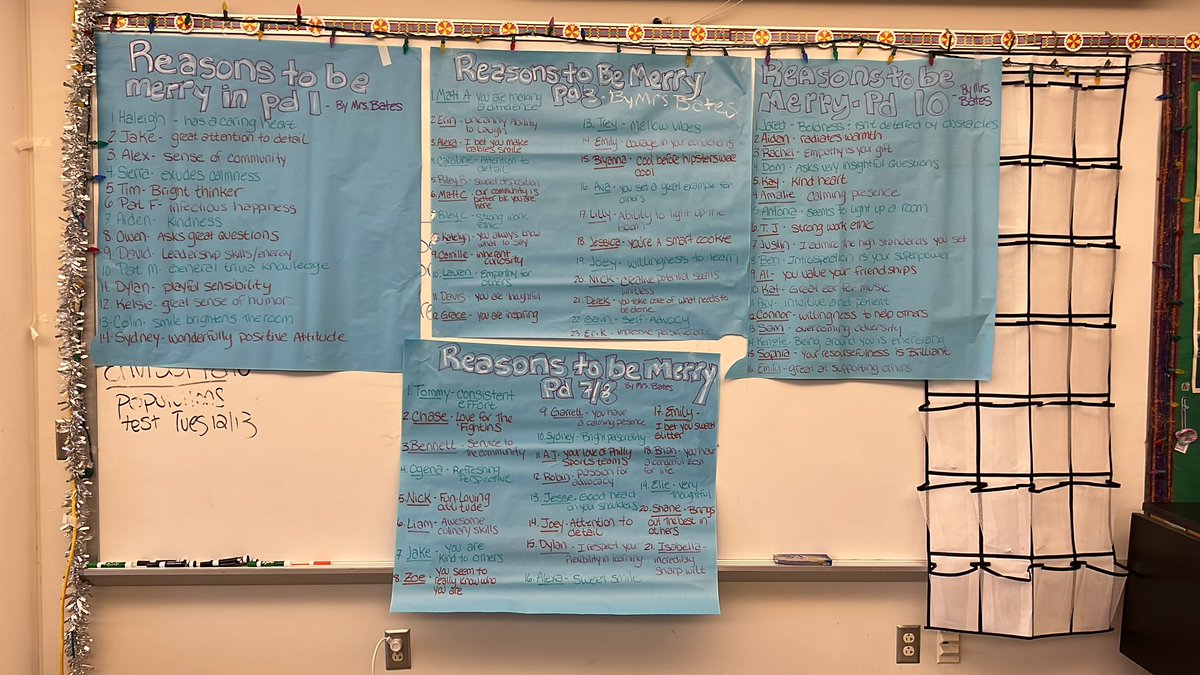 Reasons to be
merry in pd 1 - By Mrs. Bates
1 Haleigh - has a caring heart
2 Jake - great attention to detail
3 Alex - sense of community
4 Sierra - exudes calmness
5 Tim - Bright thinker
6 Pat F - Infectious happiness
7 Aiden - Kindness
8 Owen - Asks great questions
9 David - Leadership skills/energy
10 Pat M - General trivia knowledge
11 Dylan - playful sensibility
12 Kelsie - great sense of humor
13 Colin - smile brightens the room
14 Sydney - wonderfully positive Attitude
Reasons to Be Merry
Pd 3 - By Mrs Bates
1. Matt A you are making
a difference
2. Erin - uncanny Ability
to Laugh
3. Alexa - I bet you make
babies smile
4. Caroline - Attention to
detail
5. Riley B - sweet disposition
6. Matt C - our community is
better b/c you are
here
7 Riley C - strong work
ethic
8. Katelyn - you always know
what to say
9. Camille - inherent
curiosity
10. Lauren - Empathy for
others
11. Davis - you are thoughtful
12. Grace - you are inspiring
13. Trey - Mellow vibes
14 Emily - courage in your convictions
15. Bryanna - cool before hipsters were
cool
16. Ava - you set a great example for
others
17. Lilly - Ability to light up the
room
18. Jessica - you're A smart cookie
19. Joey - willingness to learn
20. Nick - creative potential seems
limitless
21. Derek - you take care of what needs to
be done
22. Gavin - Self-Advocy
23. Erik - impressive perseverence
Reasons to be
Merry - Pd 10 By Mrs
Bates
1. Jared - Boldness: isn't deterred by obstacles
2. Aidan - radiates warmth
3. Rachel - Empathy is your gift
4. Dom - Asks very insightful questions
5. Kay - kind heart
4. Amalie - Calming presence
5. Antonia - seems to light up a room
6. T.J - strong work ethic
7. Justin - I admire the high standards you set
8 Ben - Introspection is your superpower
9. Al - you value your friendships
10. Kat - Great ear for music
11. Ary - intuitive and patient
12. Connor - willingness to help others
13. Sam - overcoming adversity
14. Kenzie - Being around you is energizing
15. Sophia - your resourcefulness is Brilliant
16. Emily - great at supporting others
Reasons to be Merry
Pd 2/8 By Mrs. Bates
1. Tommy - consistent
effort
2. Chase - Love for The
'Fightins
3. Bennett - Service to
the community
4. Ogena - Refreshing
Perspective
5. Nick - Fun-Loving
attitude
6. Liam - Awesome
culinary skills
7. Jake - you are
kind to others
8. Zoe - you seem to
really know who
you are
9. Garrett - you have
a calming presence
10. Sydney - Bright personality
11. A.J. - your love of Philly
sports teams
12. Robin - passion for
advocacy
13. Jesse - Good head
on your shoulders
14. Joey - Attention to
detail
15. Dylan - I respect your
Flexibility in learning
16. Alexa - sweet smile
17. Emily -
I bet you sweat
glitter
18. Brian - you have
a wonderful zest
for life
19. Elle - very
thoughtful
20. Shane - Brings
out the best in
others
21. Isabella -
incredibly
sharp wit
Populations
test Tues 12/13